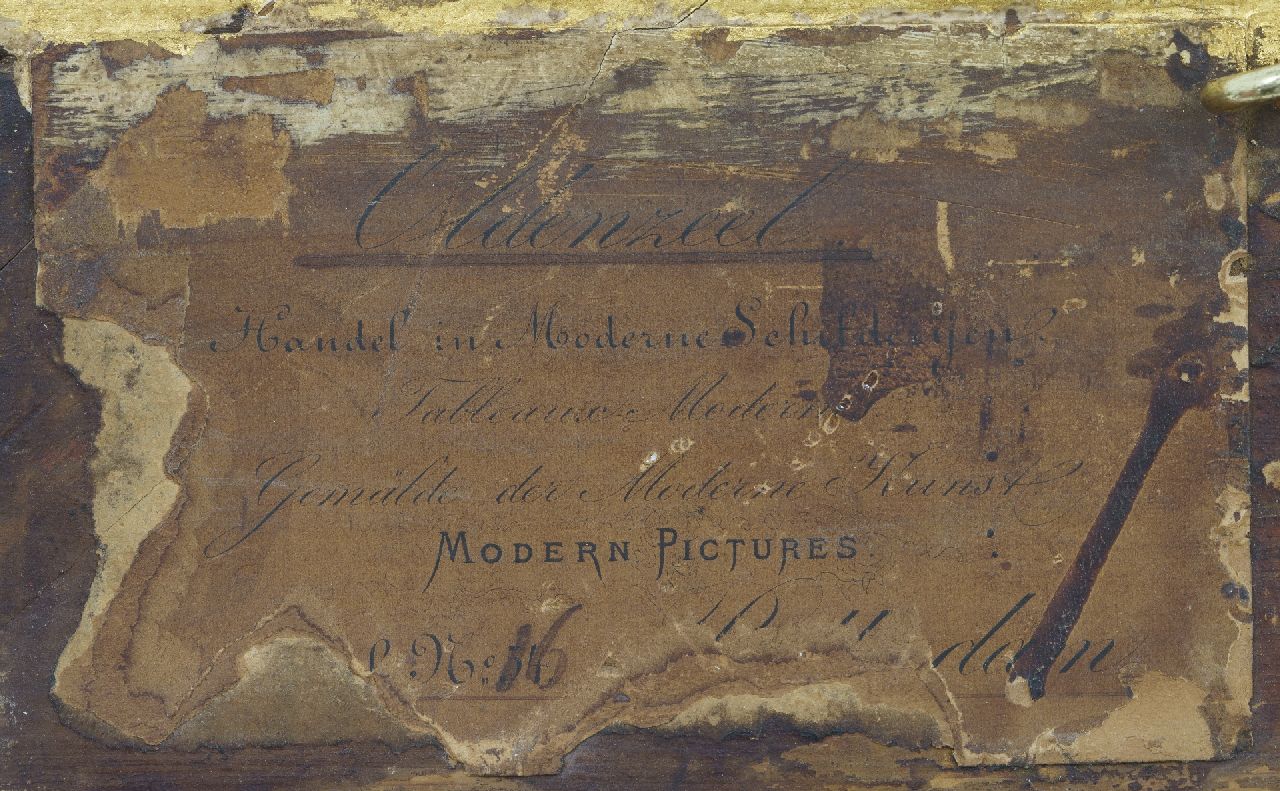 Oldenzeel.
Handel in Moderne Schilderijen
Tableaux Modern
Gemälde der Moderne Kunst
MODERN PICTURES.
No: dam